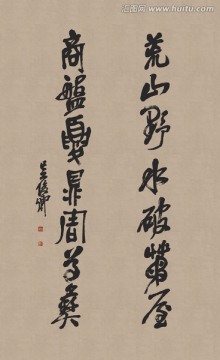 荒山野水破茅屋
商盤夏鼎周尊彝
吴俊卿
汇图网
www.huitu.com